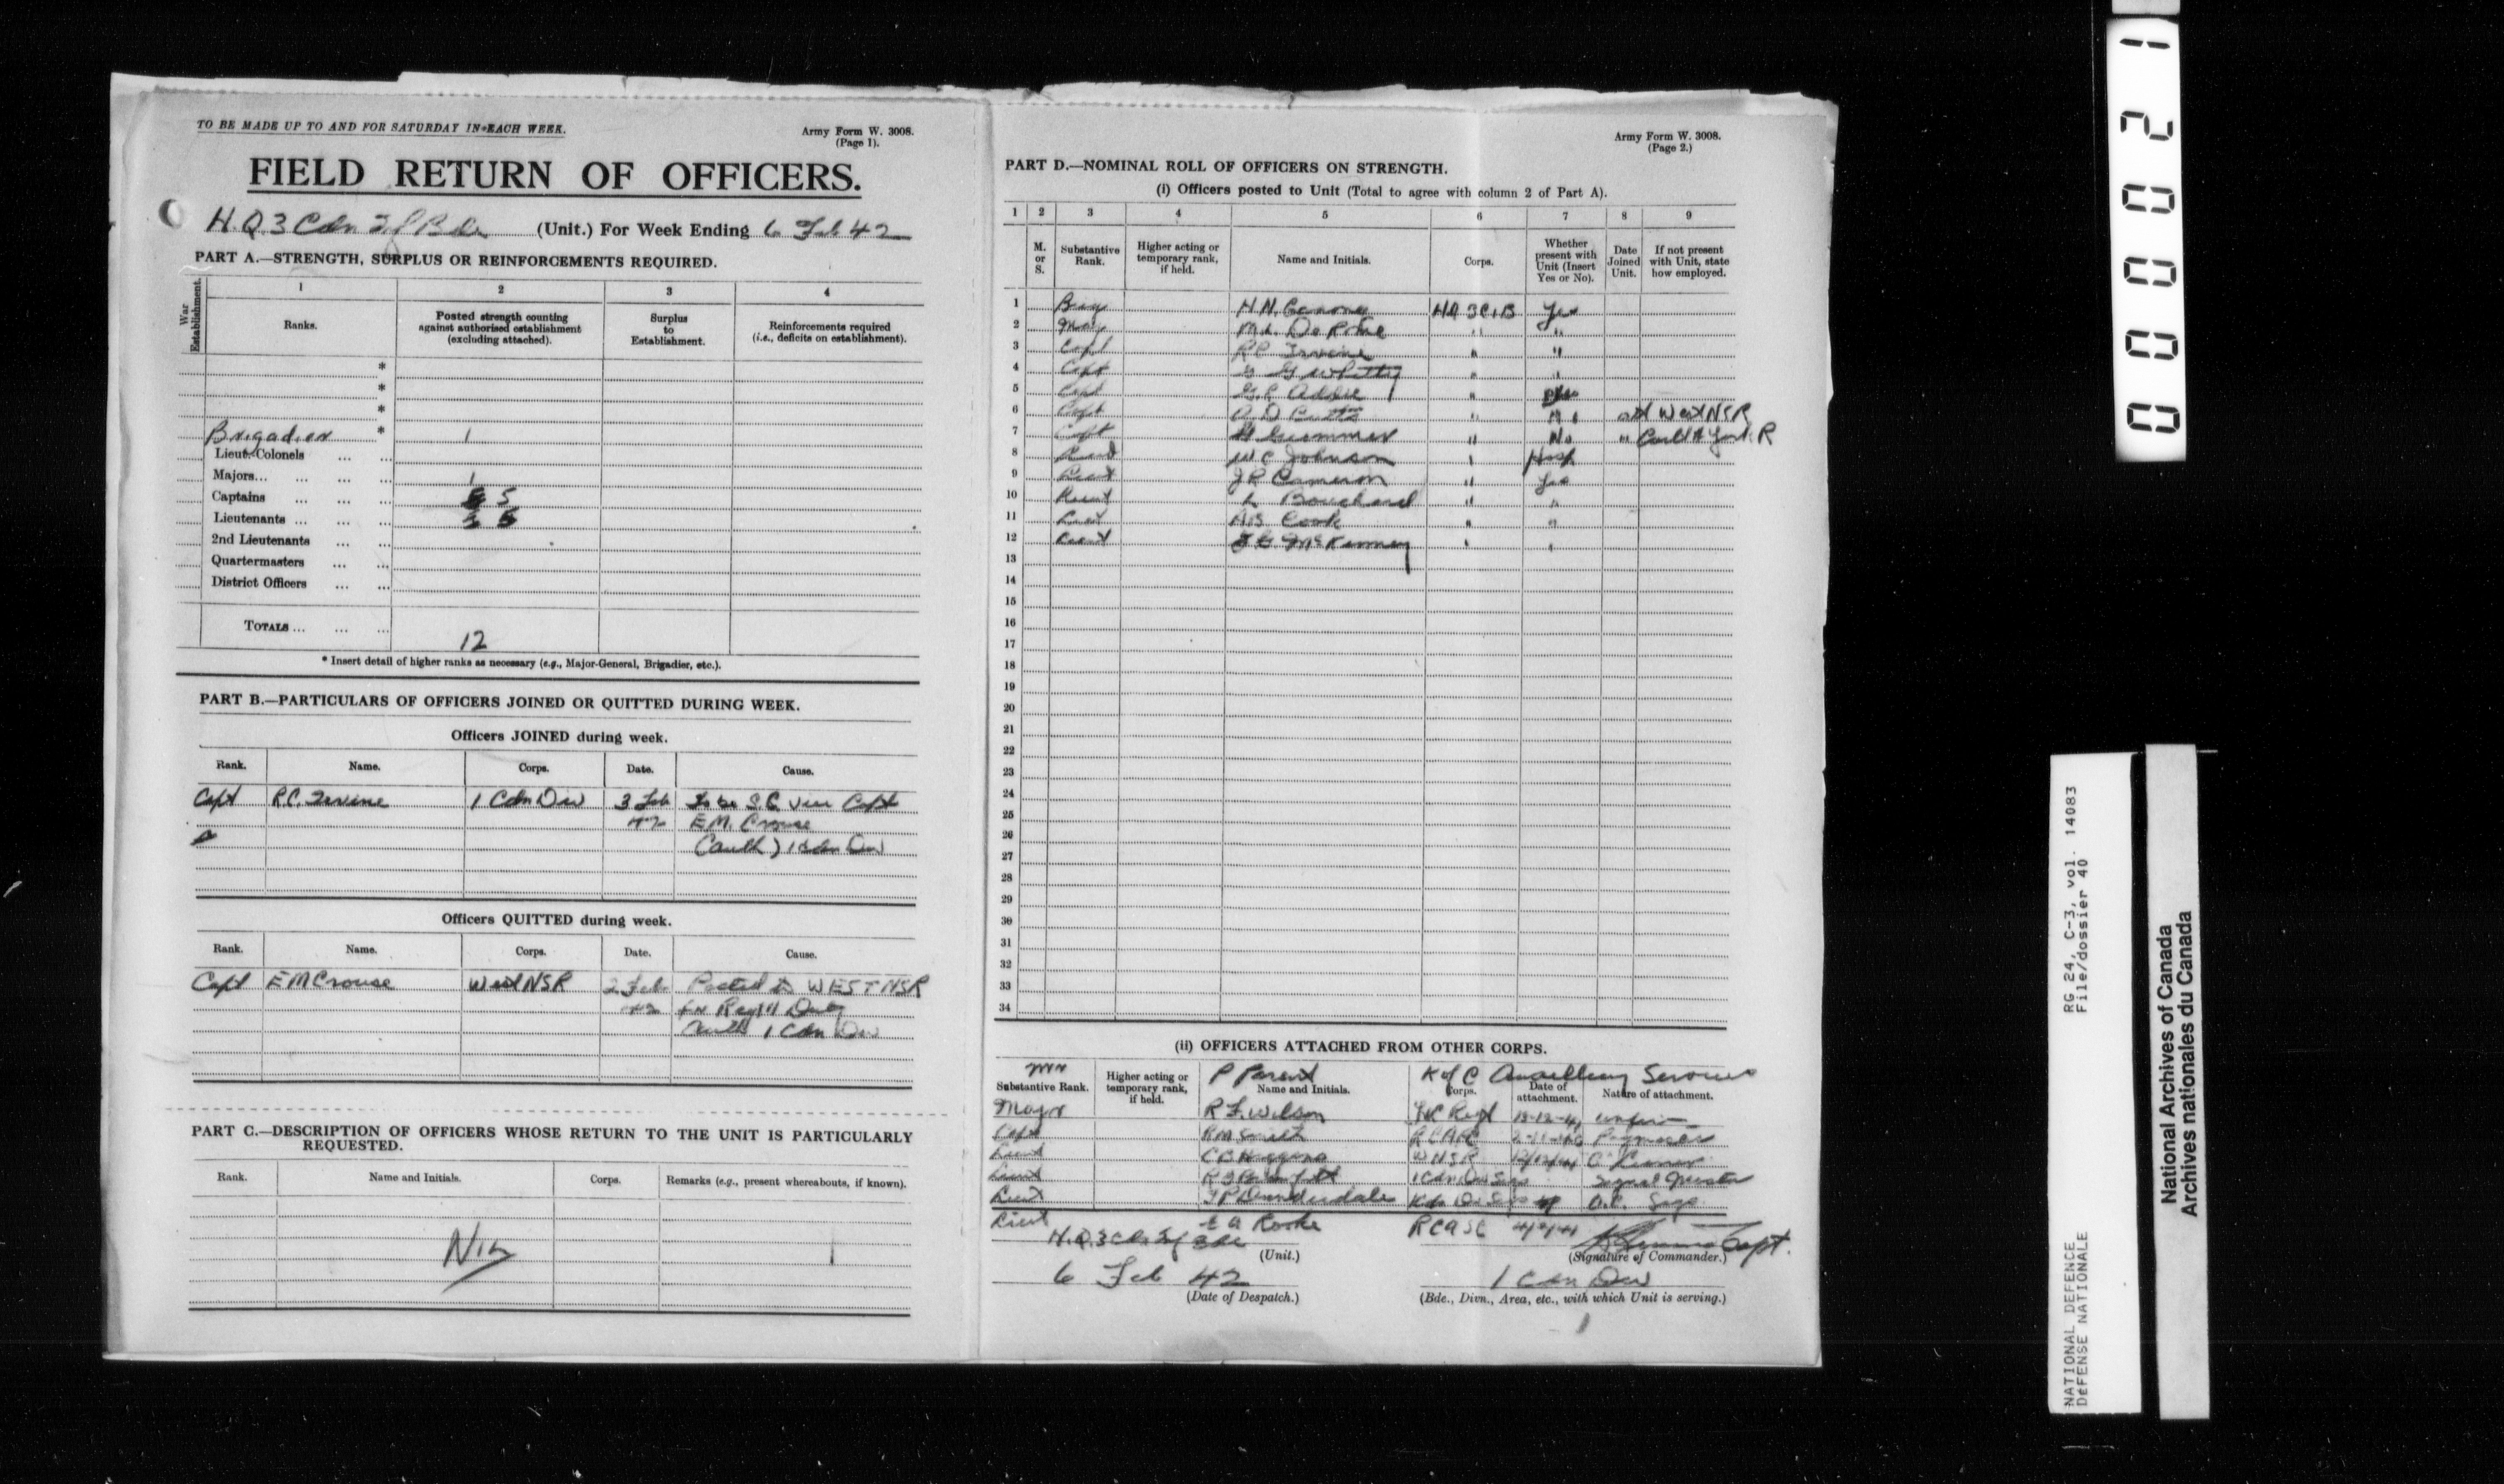 TO BE MADE UP TO AND FOR SATURDAY IN EACH WEEK.
Army Form W. 3008.
(Page 1).
FIELD RETURN OF OFFICERS.
H.Q. 3 Cdn Inf Bde (Unit.) For Week Ending 6 Feb 42
PART A.—STRENGTH, SURPLUS OR REINFORCEMENTS REQUIRED.
War Establishment.
1 2 3 4
Ranks.
Posted strength counting
against authorised establishment
(excluding attached).
Surplus
to
Establishment.
Reinforcements required
(i.e., deficits on establishment).
*
*
*
Brigadier * 1
Lieut.-Colonels ... ...
Majors... ... ... ... 1
Captains ... ... ... 5
Lieutenants ... ... ... 5
2nd Lieutenants ... ...
Quartermasters ... ...
District Officers ... ...
TOTALS ... ... ... 12
* Insert detail of higher ranks as necessary (e.g., Major-General, Brigadier, etc.).
PART B.—PARTICULARS OF OFFICERS JOINED OR QUITTED DURING WEEK.
Officers JOINED during week.
Rank. Name. Corps. Date. Cause.
Capt R.C. Irvine 1 Cdn Div 3 Feb To be S.C. vice Capt
42 E.M. Crouse
(auth) 1 Cdn Div
Officers QUITTED during week.
Rank. Name. Corps. Date. Cause.
Capt E M Crouse West NSR 2 Feb Posted to WEST NSR
42 for Reg'tl Duty
auth 1 Cdn Div
PART C.—DESCRIPTION OF OFFICERS WHOSE RETURN TO THE UNIT IS PARTICULARLY
REQUESTED.
Rank. Name and Initials. Corps. Remarks (e.g., present whereabouts, if known).
Nil
Army Form W. 3008.
(Page 2.)
PART D.—NOMINAL ROLL OF OFFICERS ON STRENGTH.
(i) Officers posted to Unit (Total to agree with column 2 of Part A).
1 2 3 4 5 6 7 8 9
M.
or
S.
Substantive
Rank.
Higher acting or
temporary rank,
if held.
Name and Initials.
Corps.
Whether
present with
Unit (Insert
Yes or No).
Date
Joined
Unit.
If not present
with Unit, state
how employed.
1 Brig Yes
2 Maj "
3 Capt Irvine " "
4 Capt " "
5 Capt Addie "
6 Capt West NSR
7 Capt " No " R
8 Lieut W C Johnson " Hosp
9 Lieut J R Cameron " Yes
10 Lieut L Bouchard " "
11 Lieut Cook " "
12 Lieut McKenney " "
13
14
15
16
17
18
19
20
21
22
23
24
25
26
27
28
29
30
31
32
33
34
(ii) OFFICERS ATTACHED FROM OTHER CORPS.
Mr P Parent K of C Auxiliary Services
Substantive Rank.
Higher acting or
temporary rank,
if held.
Name and Initials.
Corps.
Date of
attachment.
Nature of attachment.
Major R F Wilson
Capt R M Smith Paymaster
Lieut C B Higgins WNSR
Lieut
Lieut
Lieut Rooke RCASC
H.Q. 3 Cdn Inf Bde
(Unit.)
Capt.
(Signature of Commander.)
6 Feb 42
(Date of Despatch.)
1 Cdn Div
(Bde., Divn., Area, etc., with which Unit is serving.)
000021
RG 24, C-3, vol. 14083
File/dossier 40
NATIONAL DEFENCE
DéFENSE NATIONALE
National Archives of Canada
Archives nationales du Canada